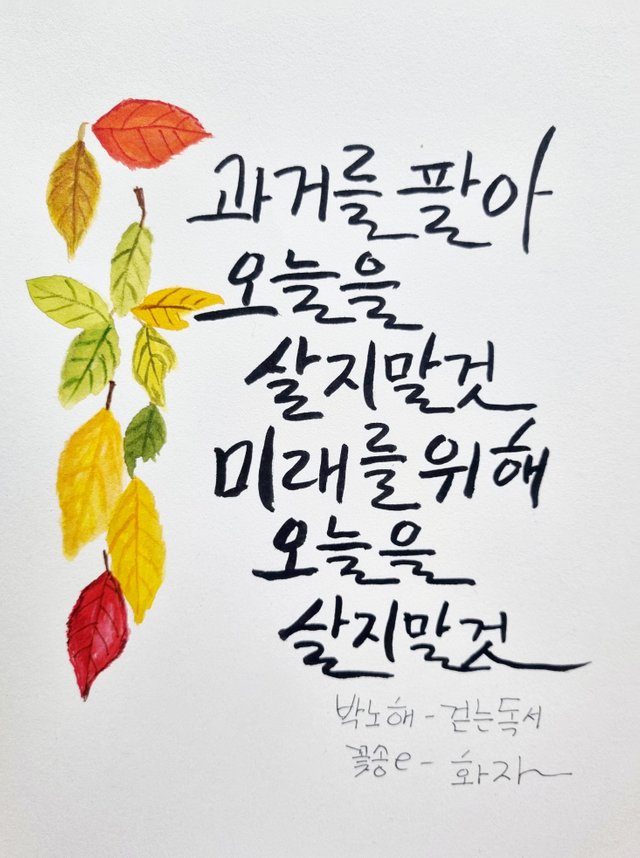 과거를 팔아
오늘을
살지말것
미래를 위해
오늘을
살지말것
박노해 - 걷는독서
꽃송e - 화자